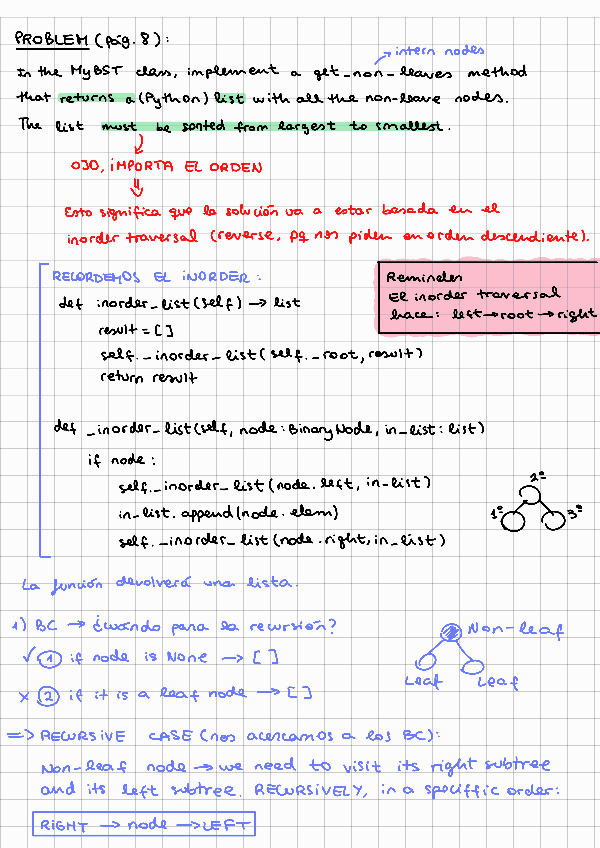 PROBLEM (pág. 8):
intern nodes
In the MyBST class, implement a get_non_leaves method
that returns a (Python) list with all the non-leave nodes.
The list must be sorted from largest to smallest.
OJO, iMPORTA EL ORDEN
Esto significa que la solución va a estar basada en el
inorder traversal (reverse, pq nos piden en orden descendiente).
RECORDEMOS EL INORDER:
def inorder_list(self) -> list
result = []
self._inorder_list(self._root, result)
return result
Reminder
El inorder traversal
hace: left → root → right
def _inorder_list(self, node: BinaryNode, in_list: list)
if node:
self._inorder_list(node.left, in_list)
in_list.append(node.elem)
self._inorder_list(node.right, in_list)
2º
1º 3º
La función devolverá una lista.
1) BC → ¿cuándo para la recursión?
✓ ① if node is None → []
x ② if it is a leaf node → []
Non-leaf
Leaf Leaf
=> RECURSIVE CASE (nos acercamos a los BC):
Non-leaf node → we need to visit its right subtree
and its left subtree. RECURSIVELY, in a speciffic order:
RIGHT → node → LEFT